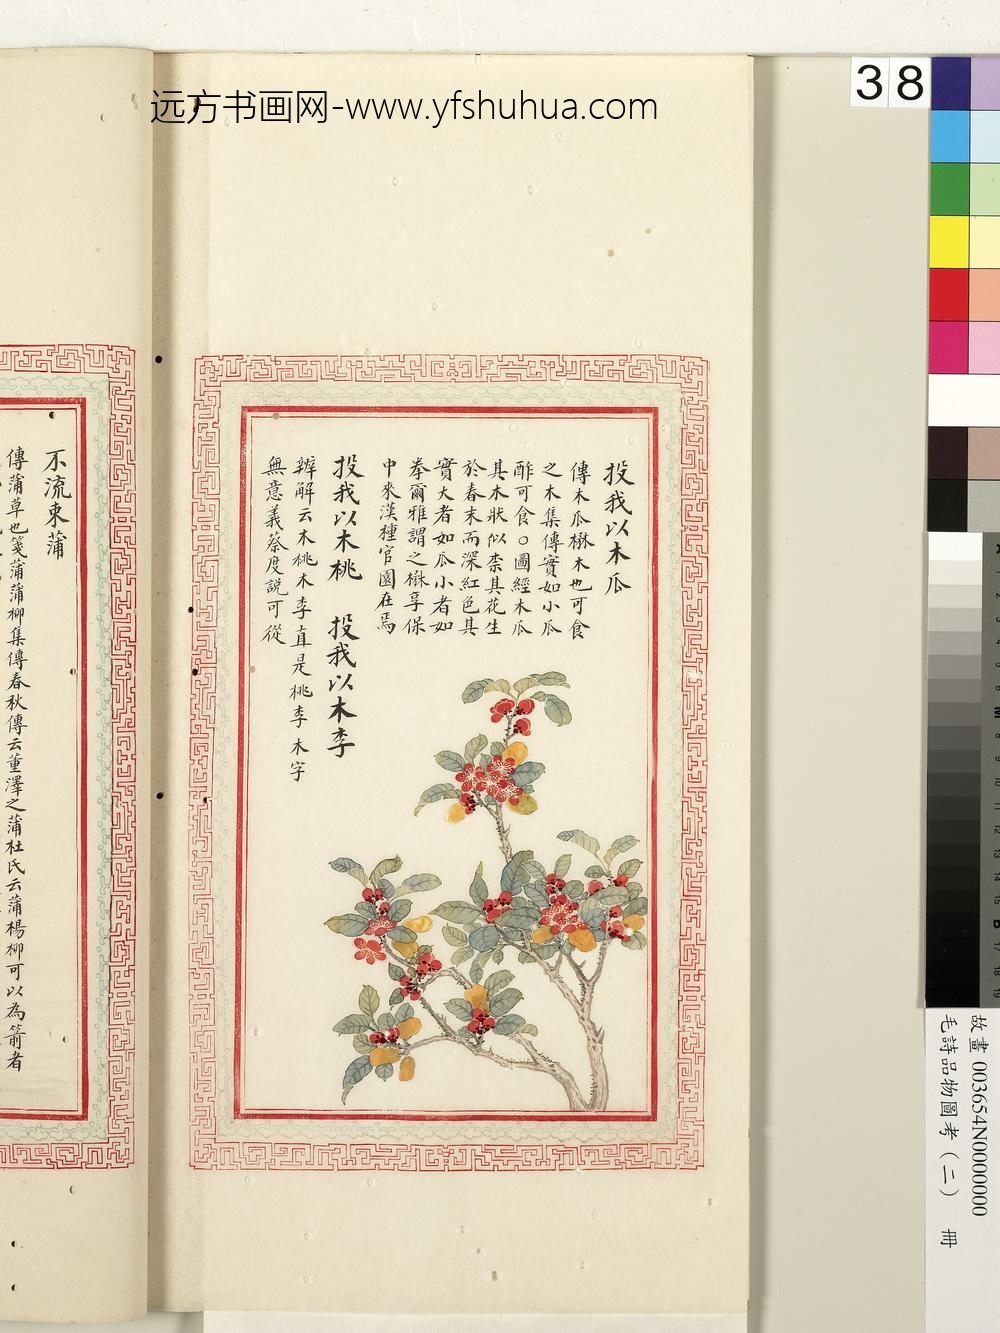 远方书画网-www.yfshuhua.com
38
投我以木瓜
傳木瓜楙木也可食
之木集傳實如小瓜
酢可食○圖經木瓜
其木狀似柰其花生
於春末而深紅色其
實大者如瓜小者如
拳爾雅謂之楙享保
中來漢種官園在焉
投我以木桃 投我以木李
辨解云木桃木李直是桃李木字
無意義蔡度説可從
不流束蒲
傳蒲草也箋蒲蒲柳集傳春秋傳云董澤之蒲杜氏云蒲楊柳可以為箭者
故畫 003654N0000000
毛詩品物圖考(二) 冊